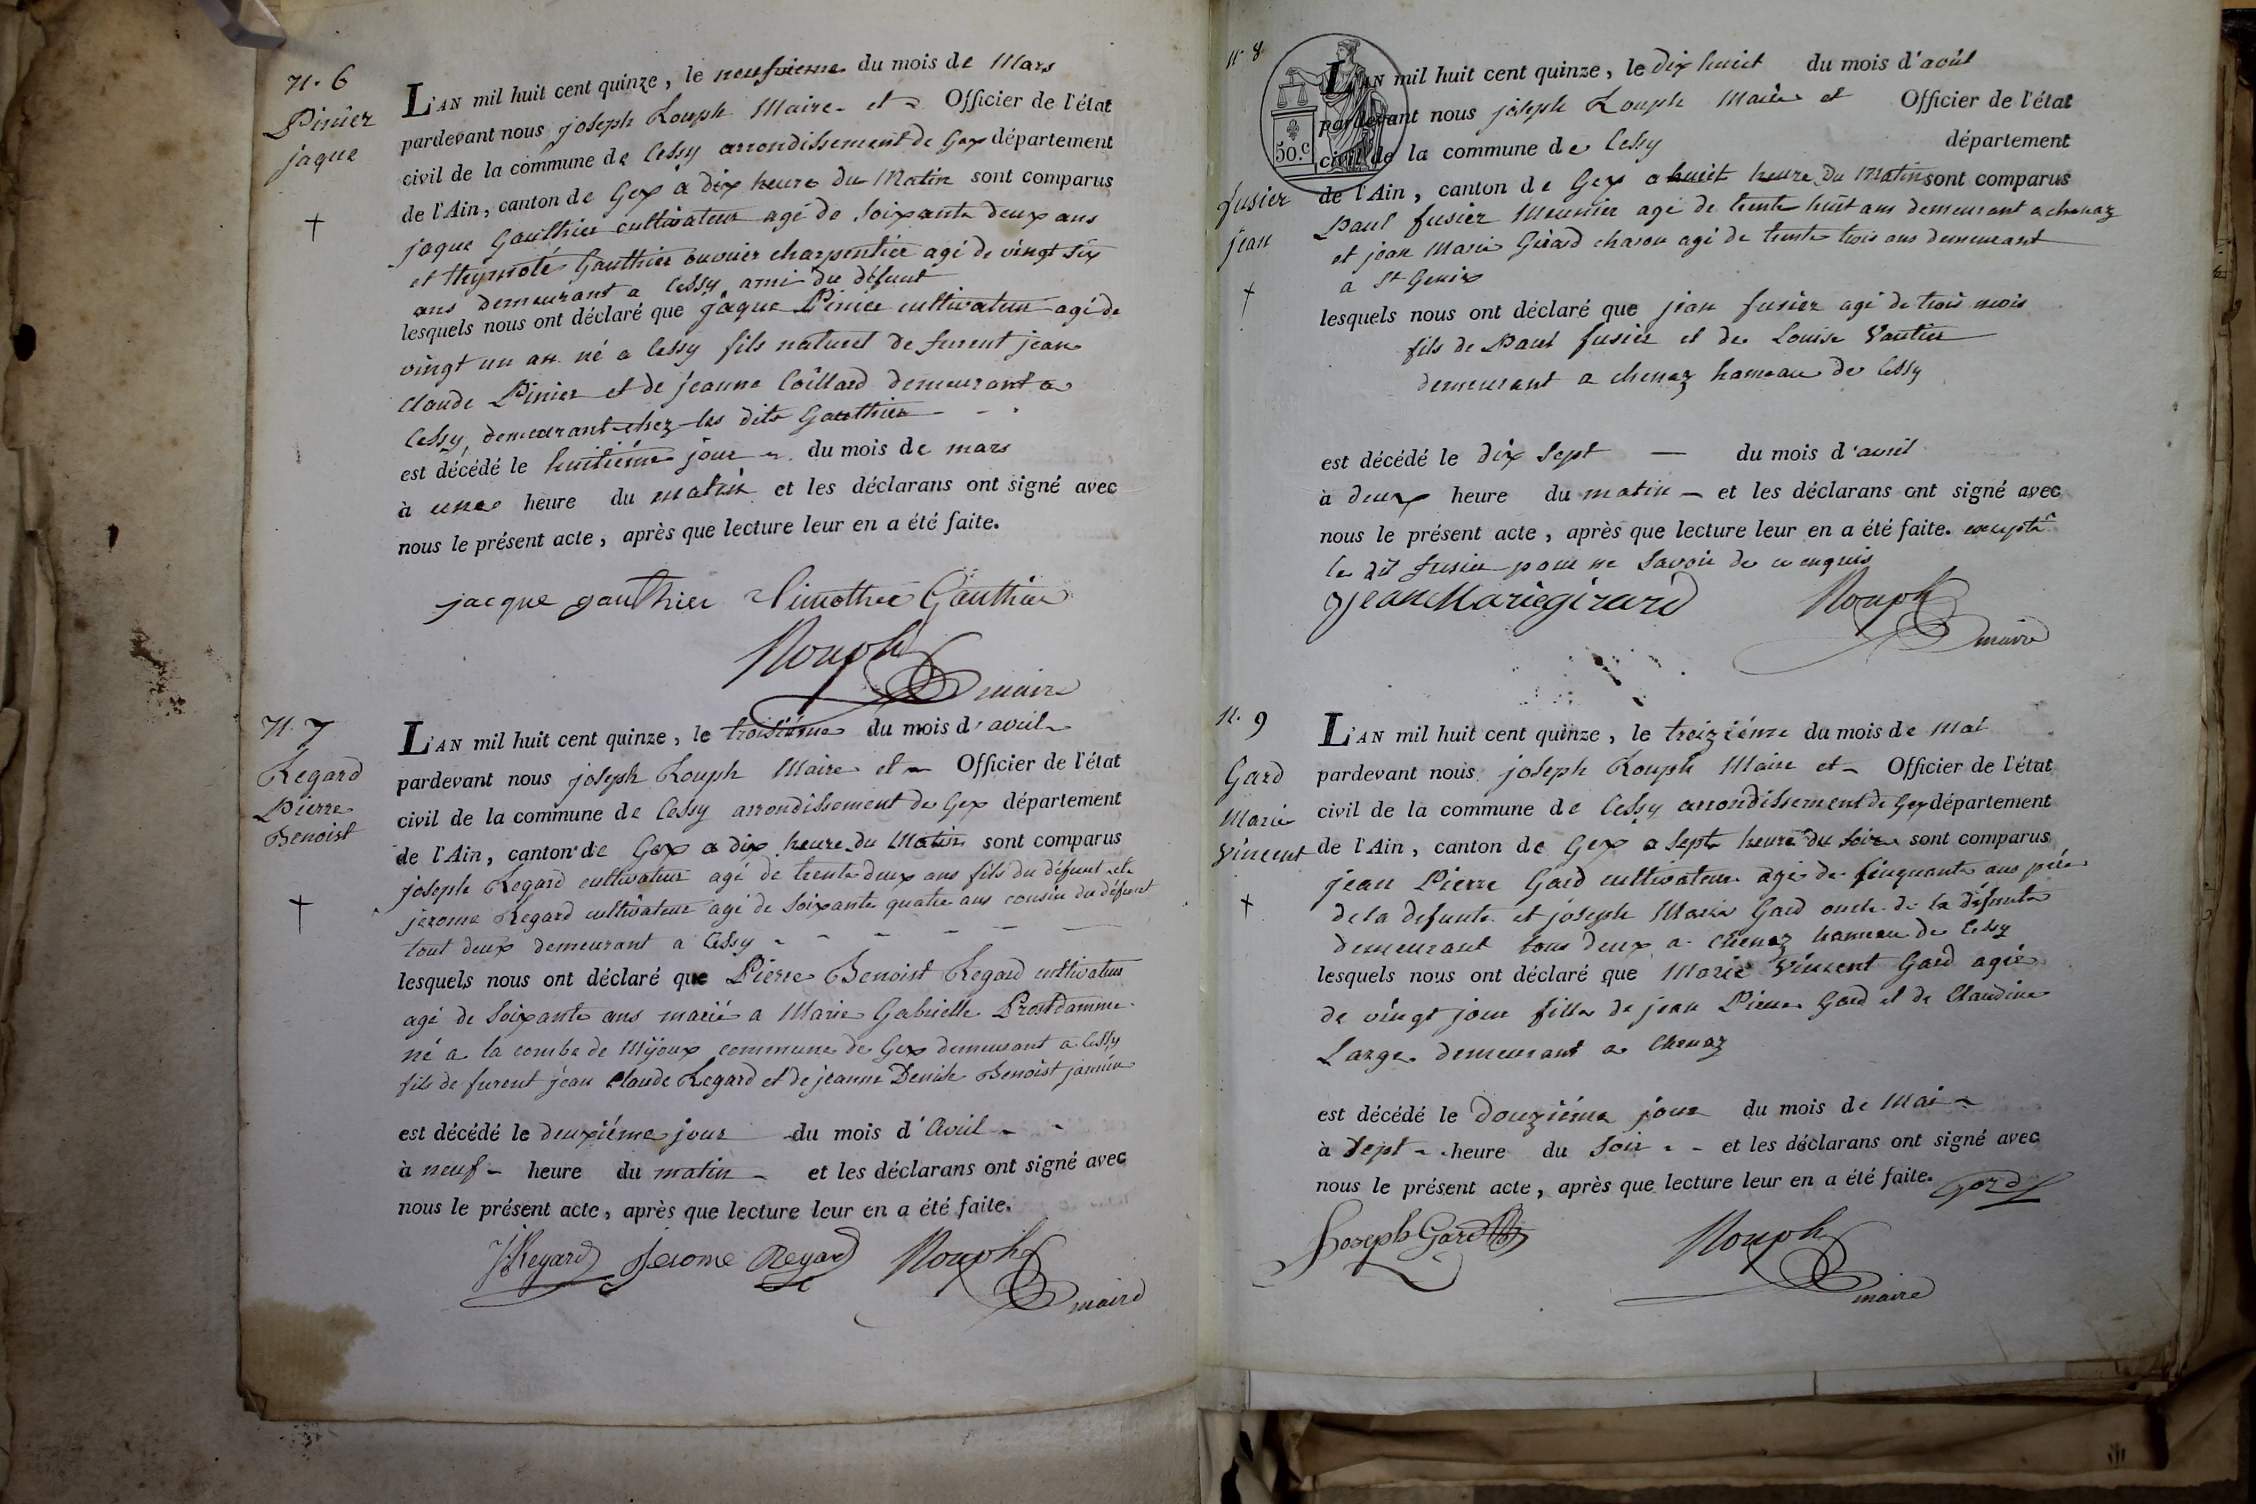 N. 6
Pinier
jaque
L'AN mil huit cent quinze, le neufvieme du mois de Mars
pardevant nous joseph Rouph Maire et Officier de l'état
civil de la commune de Cessy arrondissement de Gex département
de l'Ain, canton de Gex a dix heure du Matin sont comparus
jaque Gauthier cultivateur agé de soixante deux ans
et thymoté Gauthier ouvrier charpentier agé de vingt six
ans demeurant a Cessy ami du défunt
lesquels nous ont déclaré que jaque Pinier cultivateur agé de
vingt un an né a Cessy fils naturel de furent jean
Claude Pinier et de jeanne Coillard demeurant a
Cessy, demeurant chez les dits Gauthier
est décédé le huitiéme jour du mois de mars
à une heure du matin et les déclarans ont signé avec
nous le présent acte, après que lecture leur en a été faite.
jacque gauthier Timothee Gauthier
Rouph
maire
N. 7
Regard
Pierre
Benoist
L'AN mil huit cent quinze, le troisiéme du mois d'avril
pardevant nous joseph Rouph Maire et Officier de l'état
civil de la commune de Cessy arrondissement de Gex département
de l'Ain, canton de Gex a dix heure du Matin sont comparus
joseph Regard cultivateur agé de trente deux ans fils du défunt et
jerome Regard cultivateur agé de soixante quatre ans cousin du défunt
tout deux demeurant a Cessy
lesquels nous ont déclaré que Pierre Benoist Regard cultivateur
agé de soixante ans marié a Marie Gabrielle Prostdamme
né a la combe de Mijoux commune de Gex demeurant a Cessy
fils de furent jean Claude Regard et de jeanne Denise Benoist jannin
est décédé le deuxiéme jour du mois d'avril
à neuf heure du matin et les déclarans ont signé avec
nous le présent acte, après que lecture leur en a été faite.
JRegard Jerome Regard Rouph
maire
N. 8
50.c
fusier
jean
L'AN mil huit cent quinze, le dix huit du mois d'août
pardevant nous joseph Rouph Maire et Officier de l'état
civil de la commune de Cessy département
de l'Ain, canton de Gex a huit heure du Matin sont comparus
Paul fusier Meunier agé de trente huit ans demeurant a chenaz
et jean Marie Girard charon agé de trente trois ans demeurant
a St Genix
lesquels nous ont déclaré que jean fusier agé de trois mois
fils de Paul fusier et de Louise Vautier
demeurant a chenaz hameau de Cessy
est décédé le dix sept du mois d'avril
à deux heure du matin et les déclarans ont signé avec
nous le présent acte, après que lecture leur en a été faite. excepté
le dit fusier pour ne savoir de ce enquis
Jean Marie girard Rouph
maire
N. 9
Gard
Marie
Vincent
L'AN mil huit cent quinze, le treiziéme du mois de Mai
pardevant nous joseph Rouph Maire et Officier de l'état
civil de la commune de Cessy arrondissement de Gex département
de l'Ain, canton de Gex a sept heure du soir sont comparus
jean Pierre Gard cultivateur agé de cinquante ans pére
de la defunte et joseph Marie Gard oncle de la défunte
demeurant tous deux a chenaz hameau de Cessy
lesquels nous ont déclaré que Marie Vincent Gard agée
de vingt jour fille de jean Pierre Gard et de Claudine
Large demeurant a Chenaz
est décédé le douziéme jour du mois de Mai
à sept heure du soir et les déclarans ont signé avec
nous le présent acte, après que lecture leur en a été faite. Gard
Joseph Gard Rouph
maire